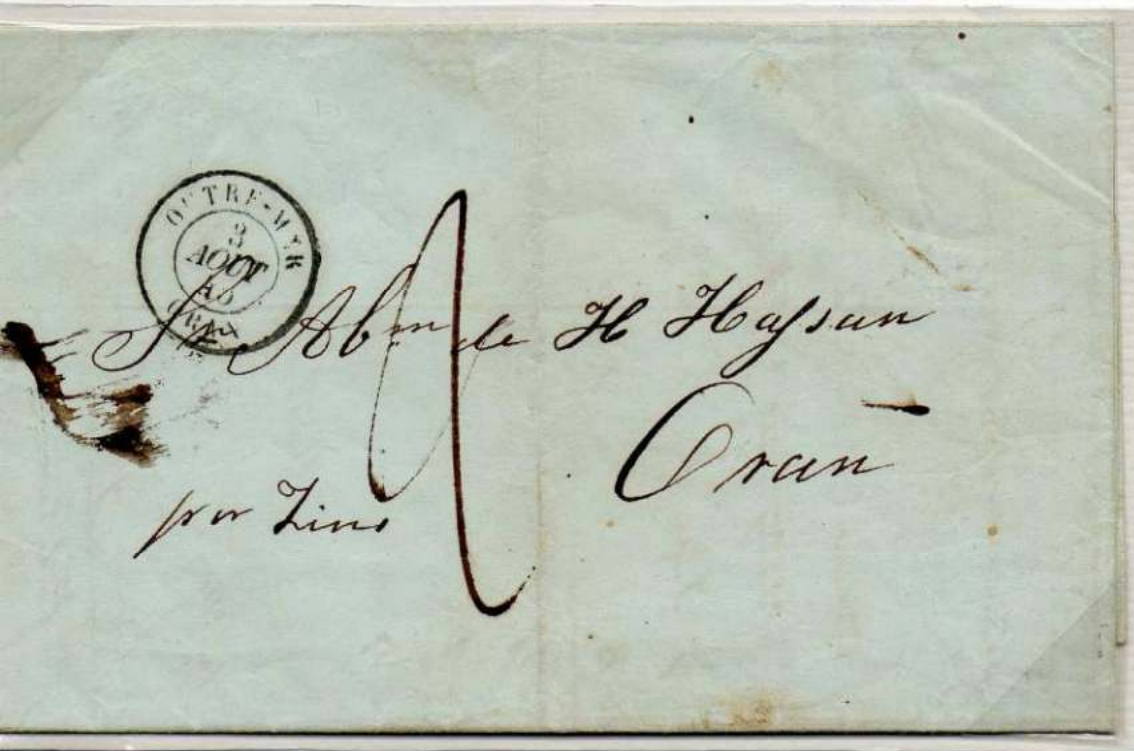 OUTRE-MER
3
AOUT
ORAN
Abm de H Hassan
Oran
por Zino